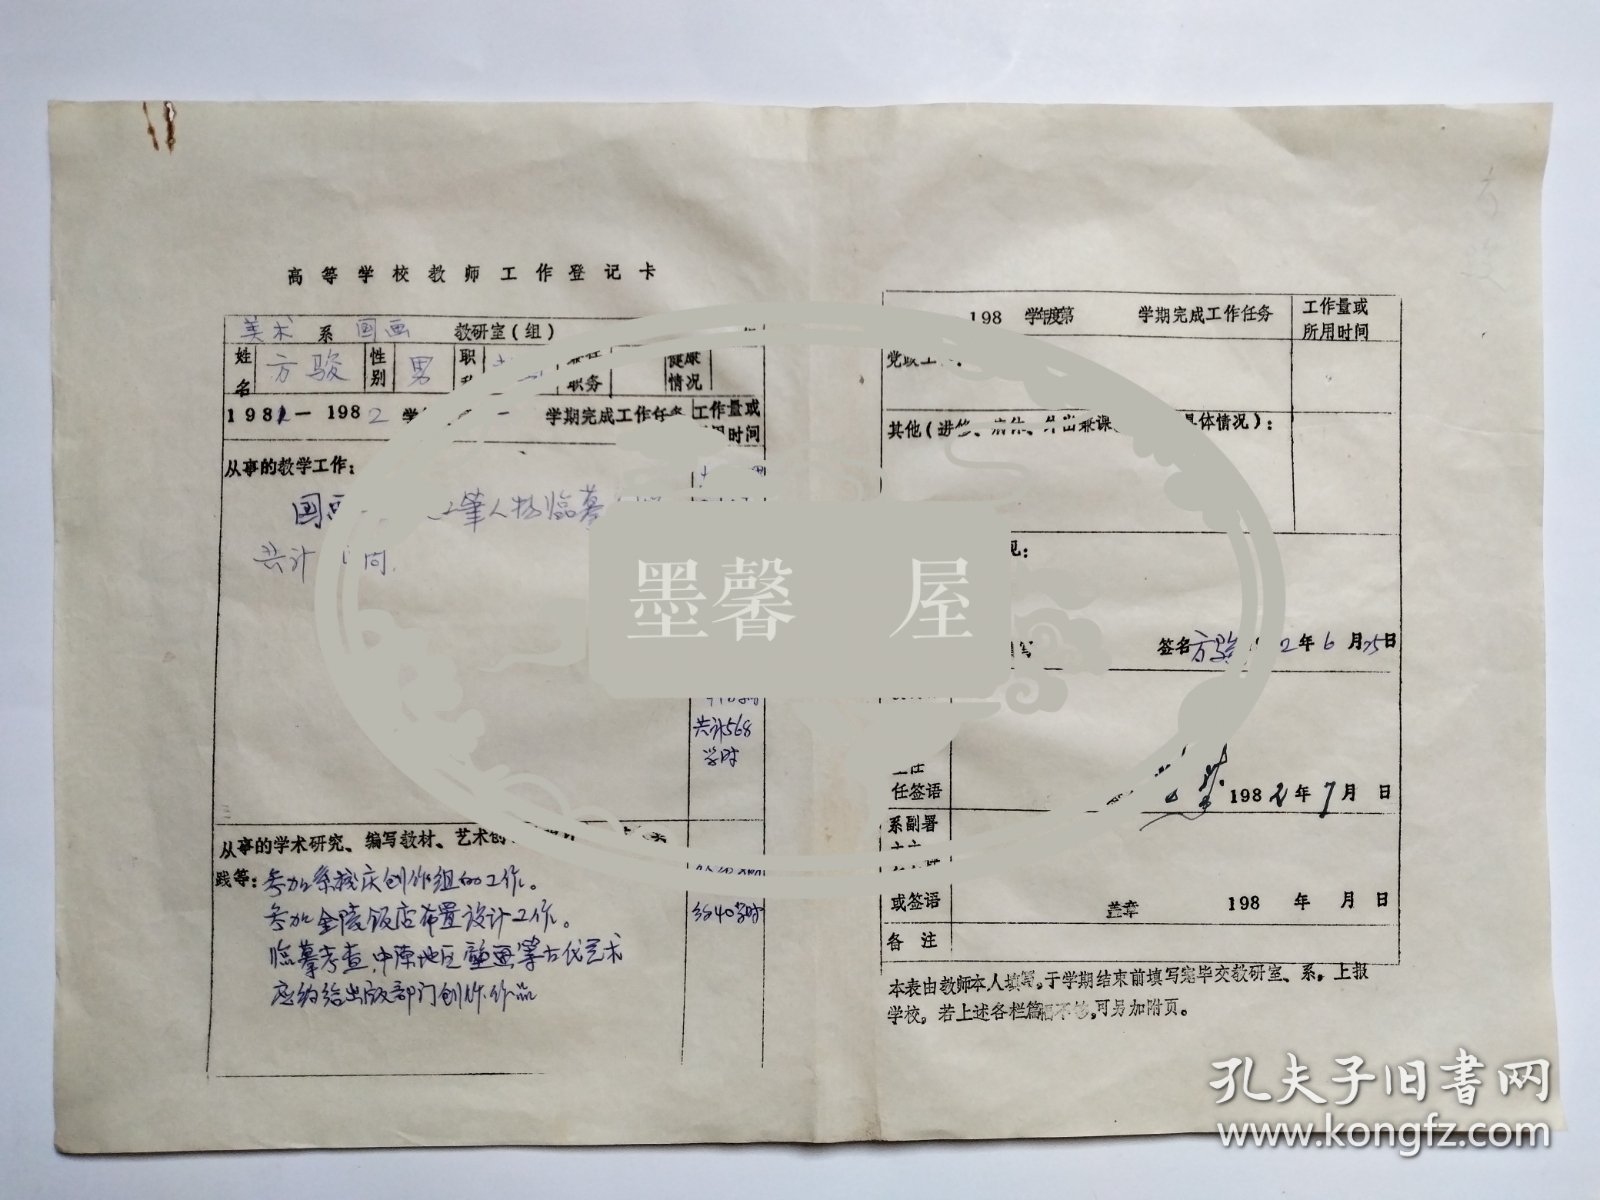 高等学校教师工作登记卡
美术 系 国画 教研室（组）
姓名 方骏 性别 男 职 职务 健康情况
1981—1982 学 学期完成工作任务 工作量或 时间
从事的教学工作：
国画 工笔人物临摹
共计 周.
共计568
学时
从事的学术研究、编写教材、艺术创
践等：参加系校庆创作组的工作。
参加金陵饭店布置设计工作。
约40学时
临摹考查，中原地区壁画等古代艺术
应约给出版部门创作作品
198 学年度第 学期完成工作任务 工作量或所用时间
党政工
其他（进修、病休、外出兼课 具体情况）：
见：
签名 方骏 2年6月25日
任签语 1982年7月 日
系副署
或签语 盖章 198 年 月 日
备注
本表由教师本人填写，于学期结束前填写完毕交教研室、系，上报
学校。若上述各栏篇幅不够，可另加附页。
墨馨 屋
孔夫子旧书网
www.kongfz.com